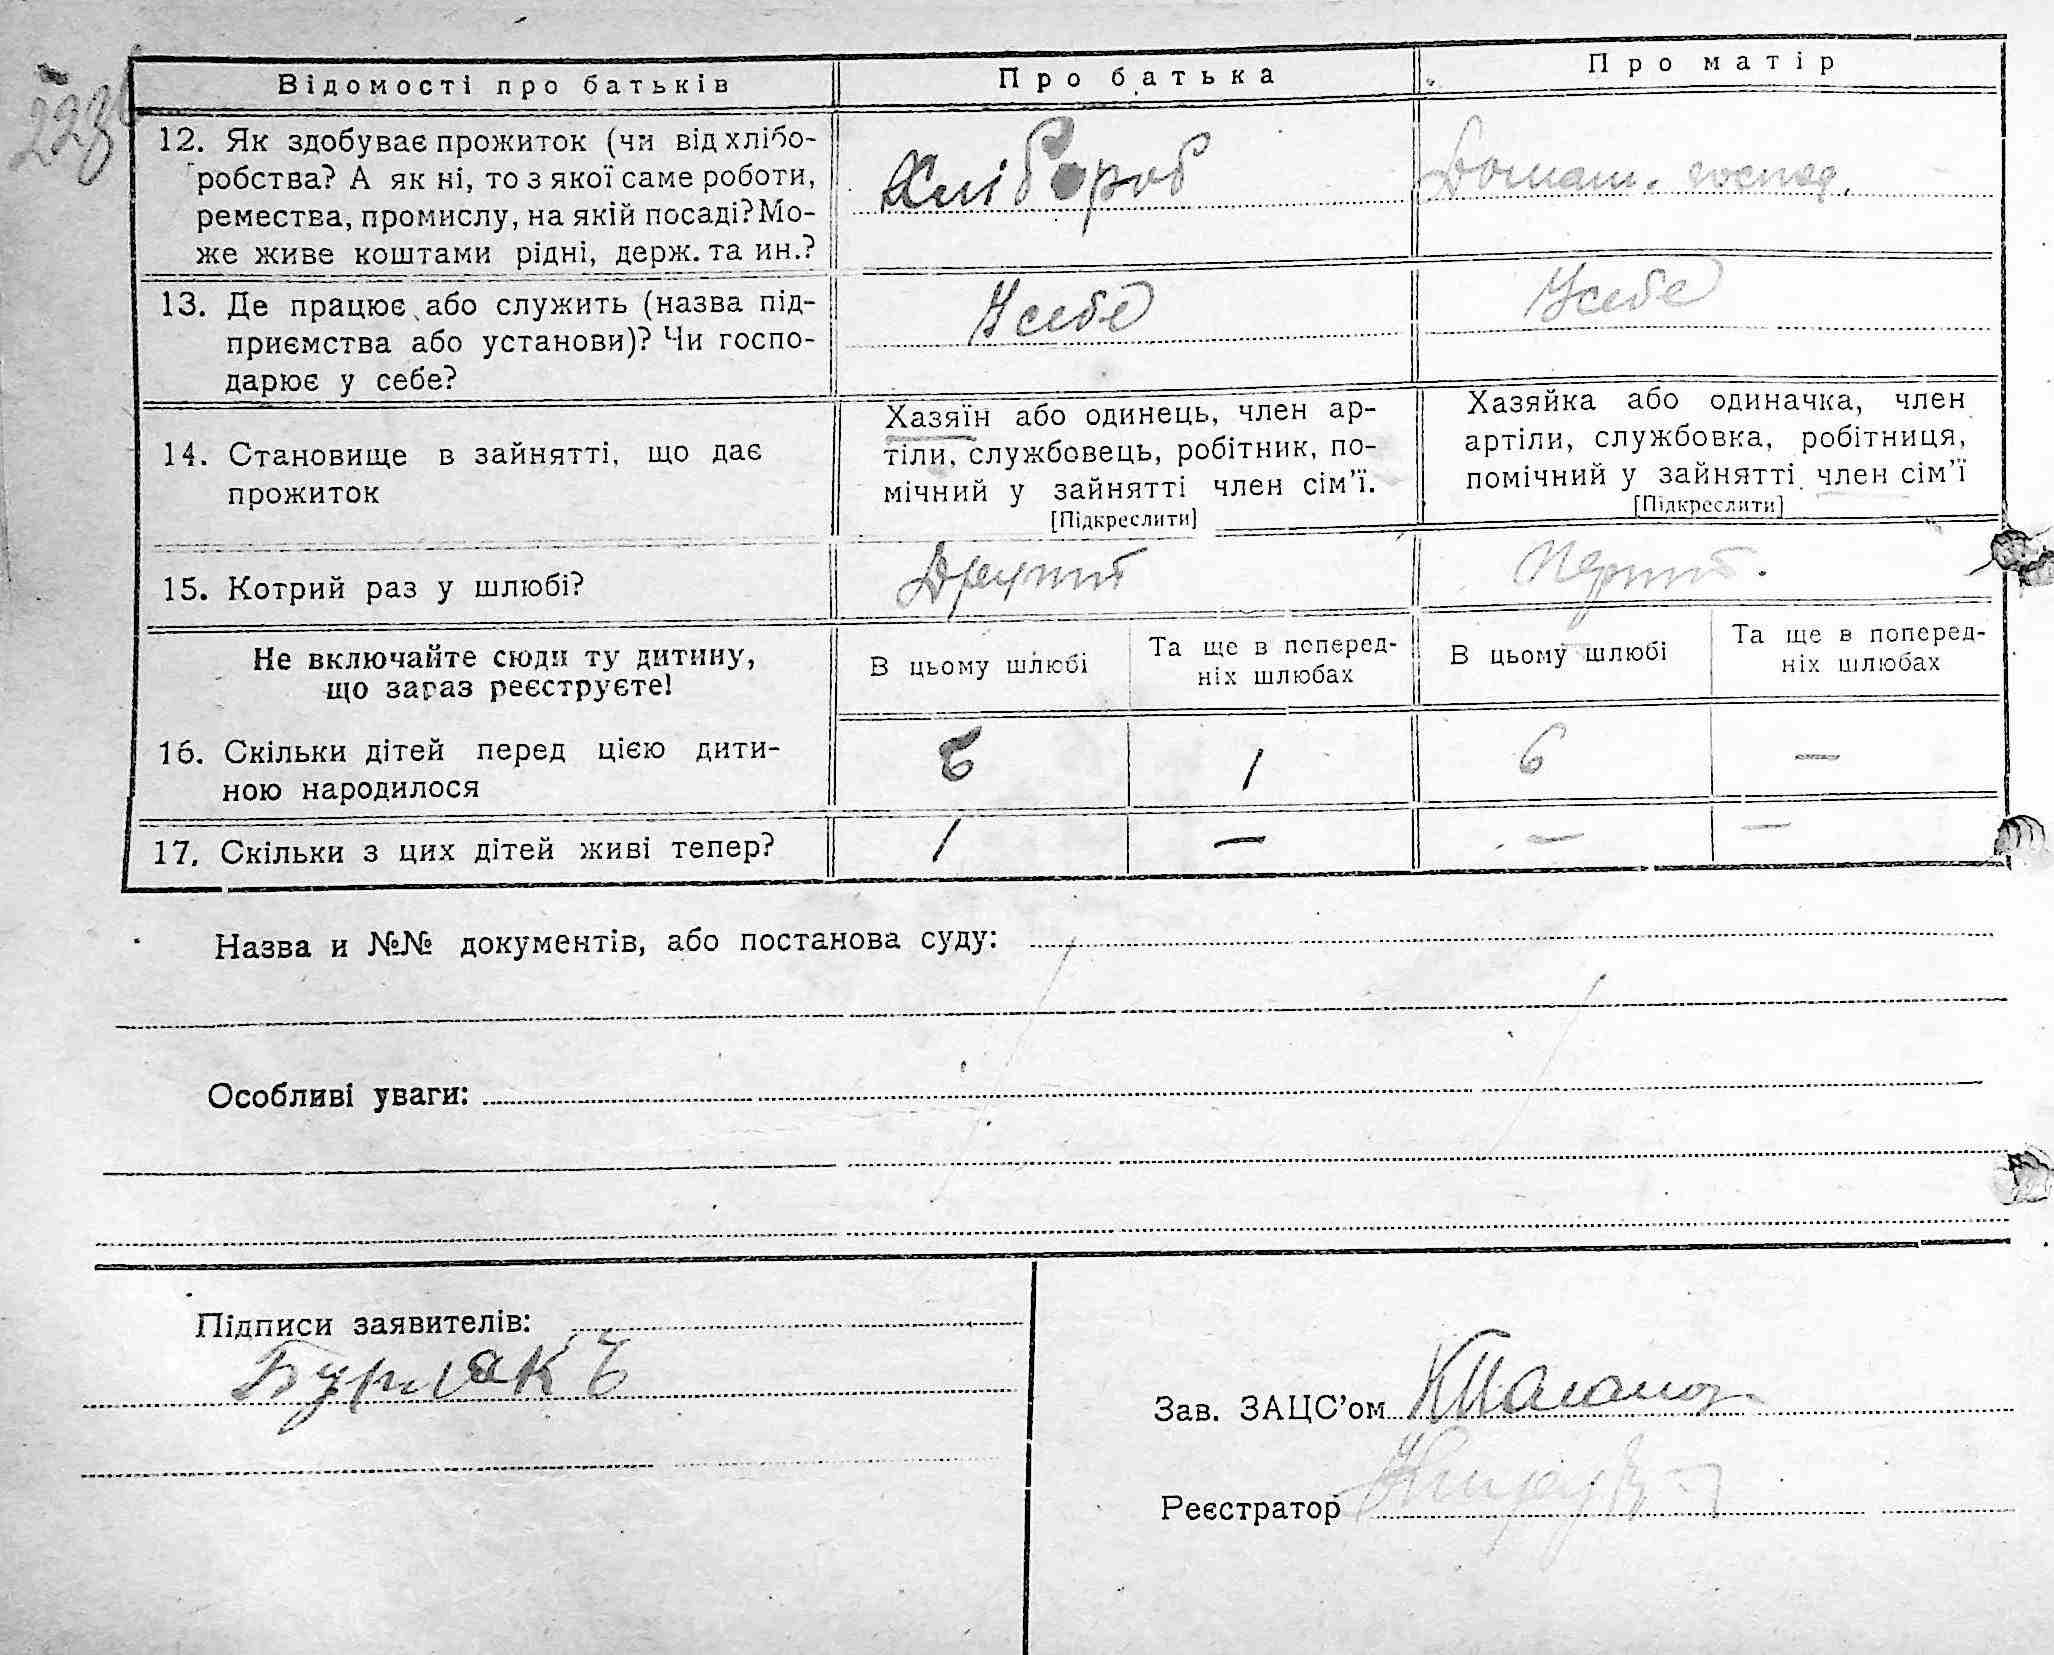 223
Відомості про батьків
Про батька
Про матір
12. Як здобуває прожиток (чи від хлібо-
робства? А як ні, то з якої саме роботи,
ремества, промислу, на якій посаді? Мо-
же живе коштами рідні, держ. та ин.?
Хлібороб
Домаш. господ.
13. Де працює або служить (назва під-
приємства або установи)? Чи госпо-
дарює у себе?
У себе
У себе
14. Становище в зайнятті, що дає
прожиток
Хазяїн або одинець, член ар-
тіли, службовець, робітник, по-
мічний у зайнятті член сім’ї.
[Підкреслити]
Хазяйка або одиначка, член
артіли, службовка, робітниця,
помічний у зайнятті член сім’ї
[Підкреслити]
15. Котрий раз у шлюбі?
Другий
Перший.
Не включайте сюди ту дитину,
що зараз реєструєте!
В цьому шлюбі
Та ще в поперед-
ніх шлюбах
В цьому шлюбі
Та ще в поперед-
ніх шлюбах
16. Скільки дітей перед цією дити-
ною народилося
6
1
6
—
17. Скільки з цих дітей живі тепер?
1
—
—
—
Назва и №№ документів, або постанова суду:
Особливі уваги:
Підписи заявителів:
Бурлакъ
Зав. ЗАЦС’ом
Реєстратор